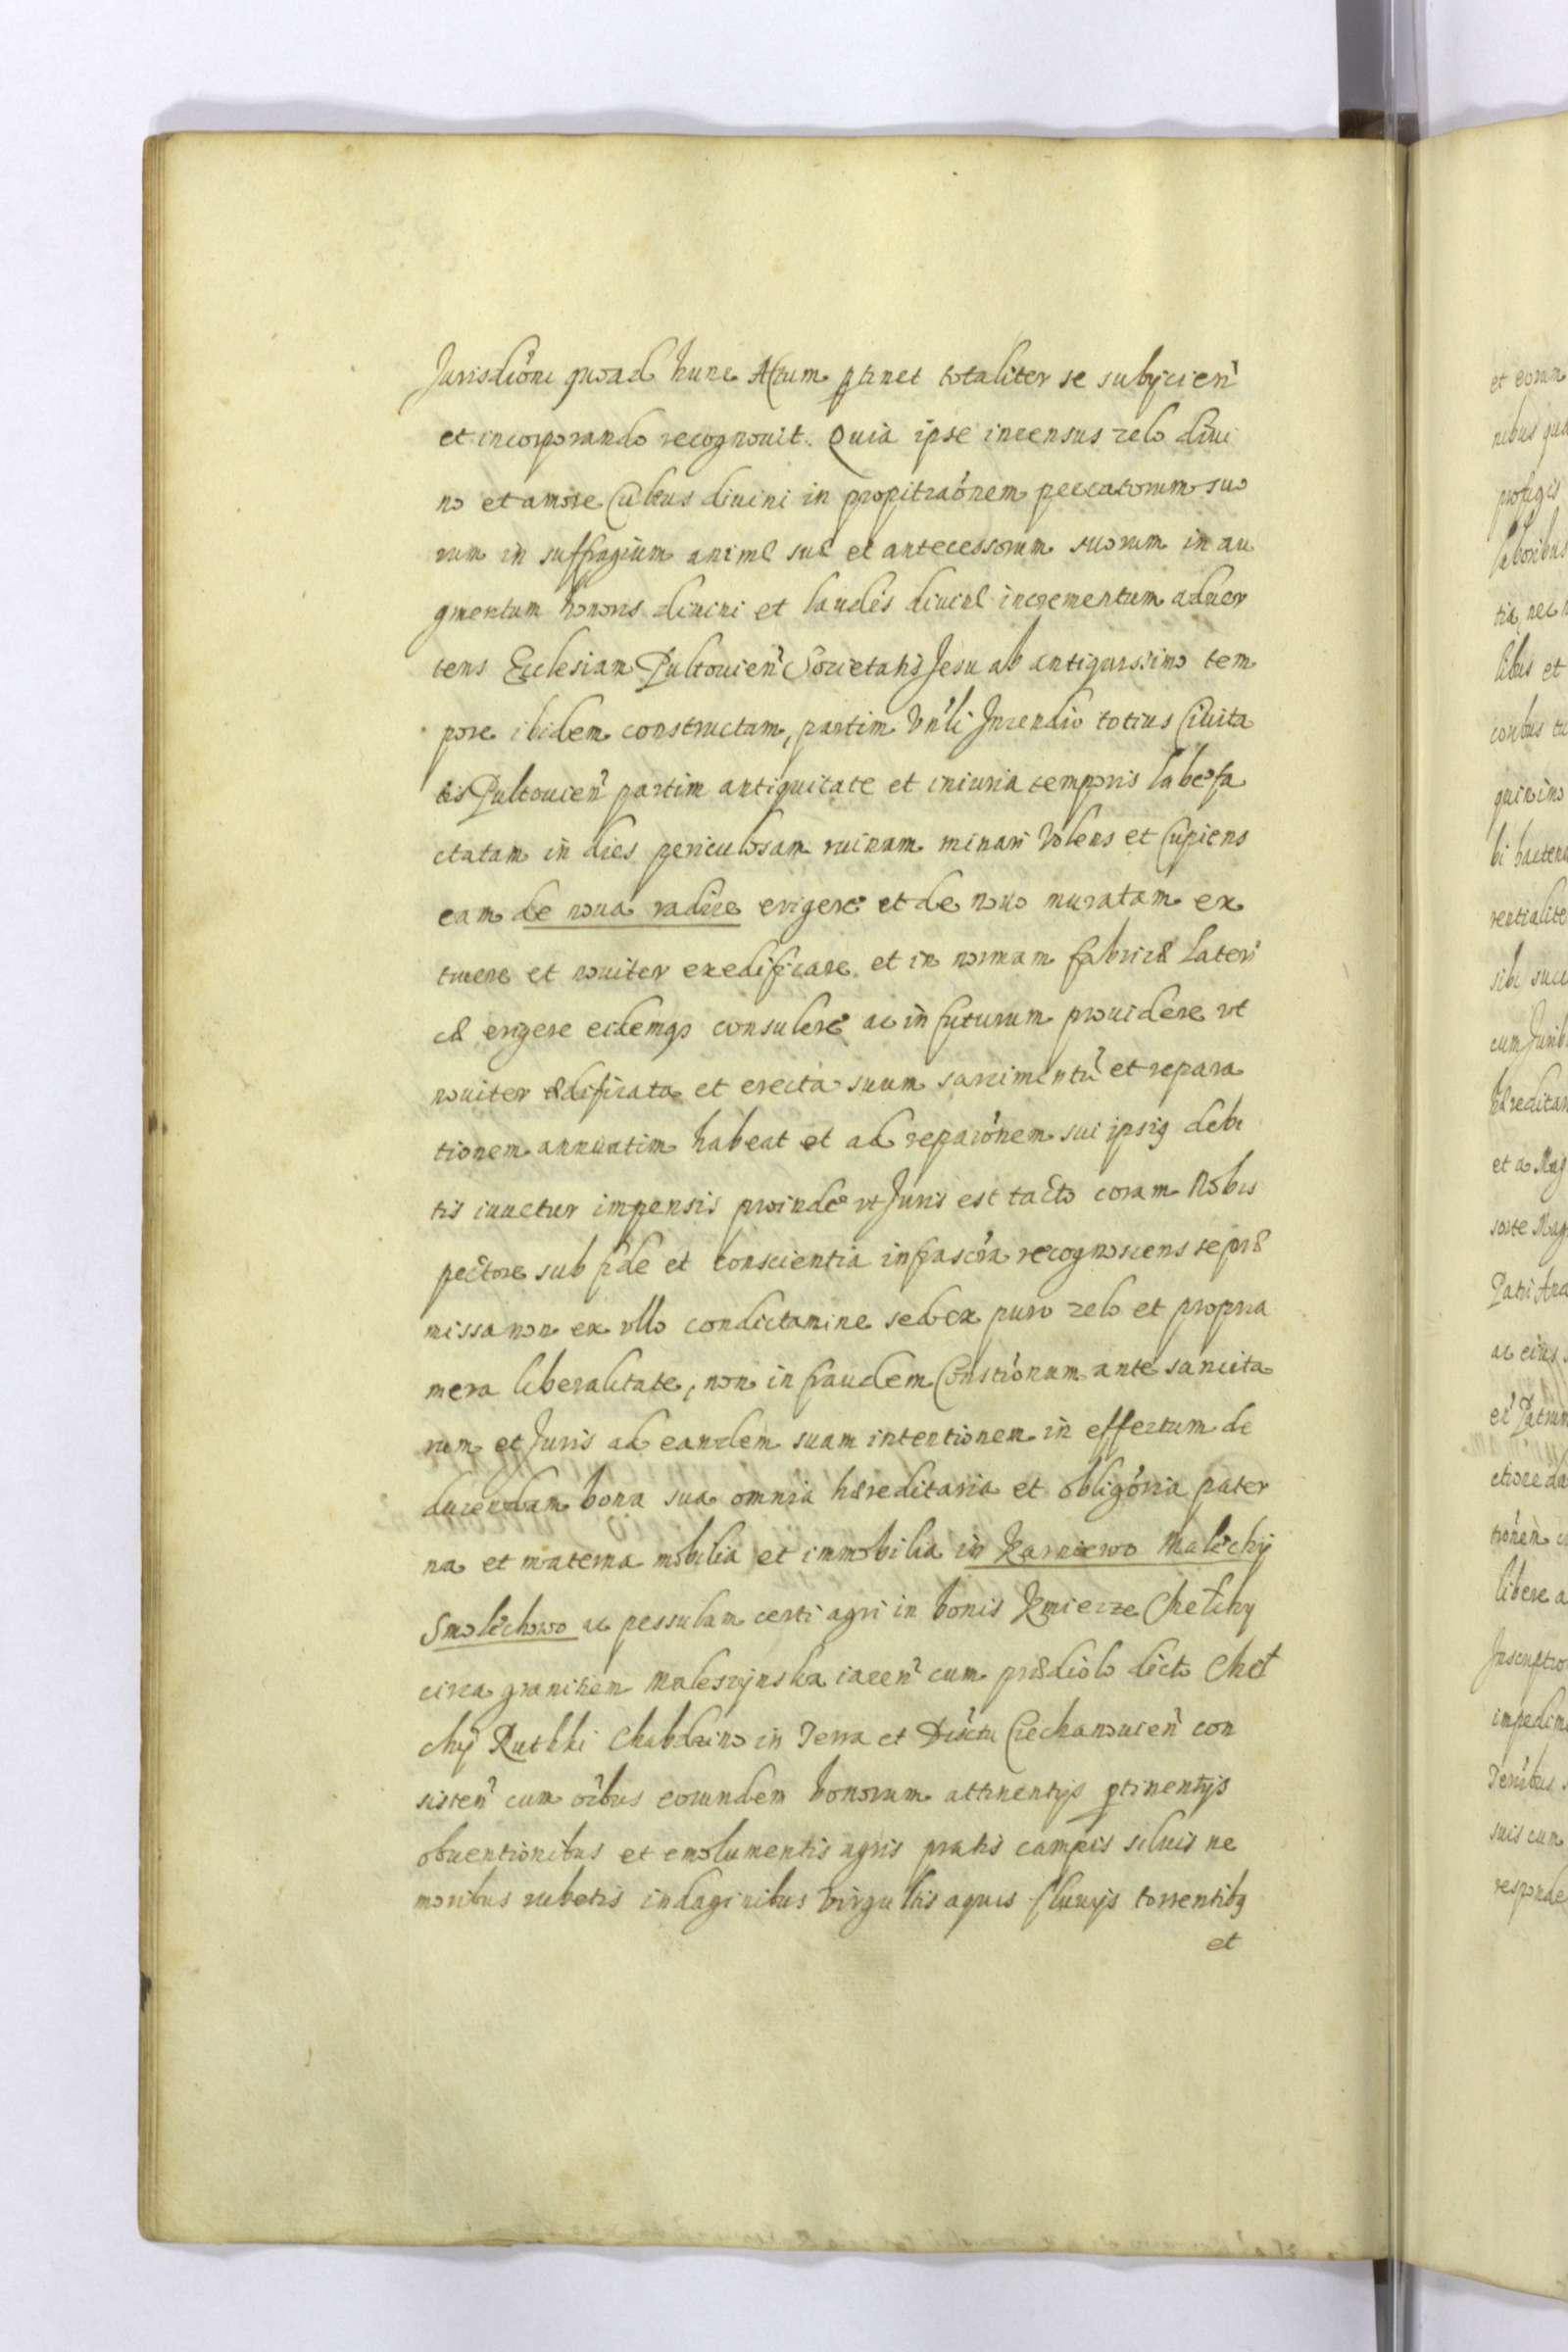 Jurisdi͠oni quoad hunc Actum ptinet totaliter se subijcien̉
et incorporando recognouit. Quia ipse incensus zelo diui
no et amore Cultus diuini in propitiaõnem peccatorum suo
rum in suffragium animę suę et antecessorum suorum in au
gmentum honoris diuini et laudis diuinę incrementum aduer
tens Ecclesiam Pultouien̉ Societatis Jesu ab antiquissimo tem
pore ibidem constructam, partim Vn̉li Incendio totius Ciuita
tis Pultouien̉ partim antiquitate et iniuria temporis labefa
ctatam in dies periculosam ruinam minari Volens et Cupiens
eam de noua radice erigere et de nouo muratam ex
truere et nouiter exedificare et in normam fabricæ Lateri
cæ erigere eidemq3 consulere ac in futurum prouidere vt
nouiter ædificata et erecta suum sarcimentũ et repara
tionem annuatim habeat et ad reparõnem sui ipsiq debi
tis iuuetur impensis proinde vt Juris est tacto coram Nobis
pectore sub fide et conscientia infrascr̃a recognoscens se præ
missa non ex vllo condictamine sed ex puro zelo et propria
mera liberalitate, non in fraudem Constiõnum ante sancita
rum et Juris ad eandem suam intentionem in effectum de
ducendam bona sua omnia hæreditaria et obligõria pater
na et materna mobilia et immobilia in Karniewo Malechÿ
Smolechowo ac pessulam certi agri in bonis Kmiecze Chełchy
circa granitiem Maleszÿnska iacen̉ cum prædiolo dicto Cheł
chÿ Rutkki Chabdzino in Terra et Disctu Ciechanouien̉ con
sisten̉ cum oĩbus eorundem bonorum attinentijs ptinentijs
obuentionibus et emolumentis agris pratis campis siluis ne
moribus rubetis indaginibus virgultis aquis fluuijs torrentibq
et
et coram
nibus qua
profugis
laboribus
tia, nec
libus et
quinimo
bi hacten
rentialite
sibi succ
cum Jurib
hæreditar
et a Mag
sorte Mag
Patri And
ac eius
et Patrum
libere a
Inscriptio
impedim
suis cum
responde